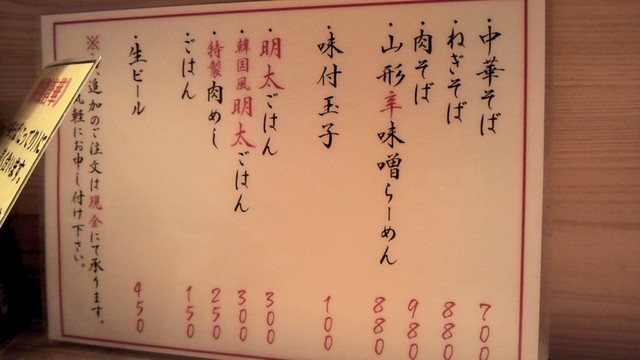 ・中華そば 700
・ねぎそば 880
・肉そば 980
・山形辛味噌らーめん 880
・味付玉子 100
・明太ごはん 300
・韓国風明太ごはん 300
・特製肉めし 250
・ごはん 150
・生ビール 450
※ 追加のご注文は現金にて承ります。
軽にお申し付け下さい。